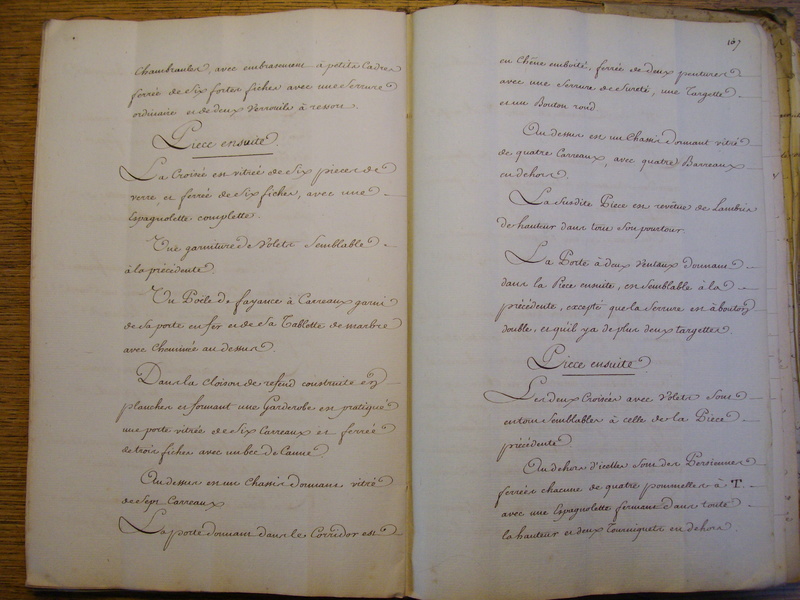 Chambranles, avec embrasement à petits Cadres
ferrée de Six fortes fiches avec une Serrure
ordinaire et de deux Verrouils à ressort.
Piece ensuite
La Croisée est vitrée de Six pieces de
verre, et ferrée de Six fiches, avec une
Espagnolette complette.
Une garniture de Volets Semblable
à la précédente.
Un Poele de fayance à Carreaux garni
de Sa porte en fer et de Sa Tablette de marbre
avec Cheminée au dessus.
Dans la Cloison de refend construite en
planches et formant une Garderobe est pratiqué
une porte vitrée de Six Carreaux et ferrée
de trois fiches avec un bec de Canne.
Au dessus est un Chassis dormant vitré
de Sept Carreaux
La porte donnant dans le Corridor est
167
en Chêne emboité, ferrée de deux pentures
avec une Serrure de Sureté, une Targette
et un Bouton rond.
Au dessus est un Chassis dormant vitré
de quatre Carreaux, avec quatre Barreaux
en dehors.
La Susdite Piece est revêtue de Lambris
de hauteur dans tout Son pourtour
La Porte à deux Ventaux donnant
dans la Piece ensuite, est Semblable à la
précédente, excepté que la Serrure est à bouton
double, et qu'il y a de plus deux targettes.
Piece ensuite
Les deux Croisées avec Volets Sont
en tout Semblables à celle de la Piece
précédente.
Au dehors d'icelles Sont des Persiennes
ferrées chacune de quatre poumelles à T.
avec une Espagnolette fermant dans toute
la hauteur et deux Tourniquets en dehors.